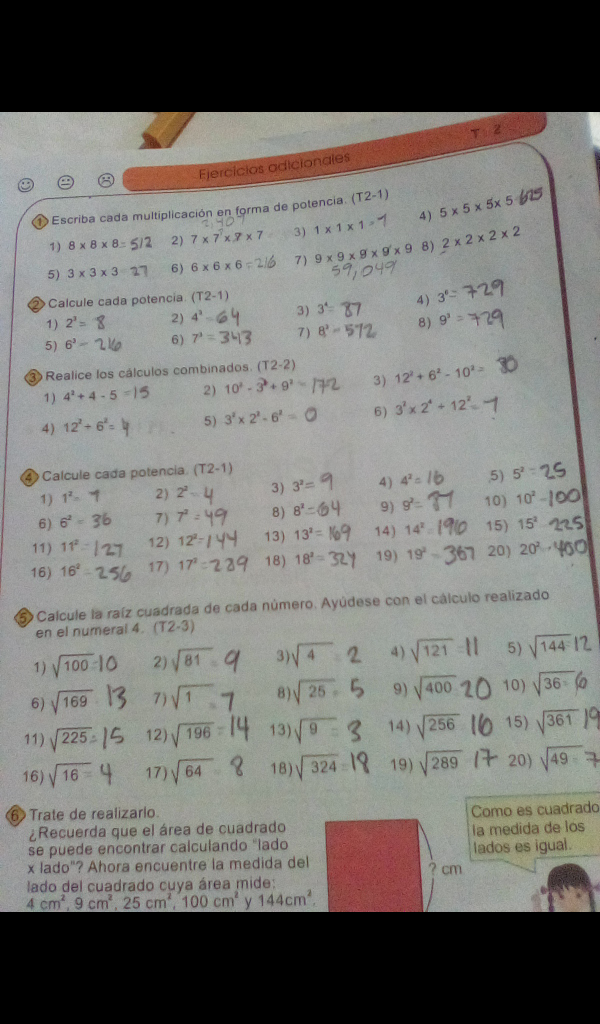 T 2
Ejercicios adicionales
1 Escriba cada multiplicación en forma de potencia. (T2-1)
1) 8 x 8 x 8 = 512 2) 7 x 7 x 7 x 7 3) 1 x 1 x 1 = 1 4) 5 x 5 x 5 x 5 625
5) 3 x 3 x 3 27 6) 6 x 6 x 6 = 216 7) 9 x 9 x 9 x 9 x 9 8) 2 x 2 x 2 x 2
59,049
2 Calcule cada potencia. (T2-1)
1) 2³ = 8 2) 4³ = 64 3) 3⁴ = 81 4) 3⁶ = 729
5) 6³ = 216 6) 7³ = 343 7) 8³ = 512 8) 9³ = 729
3 Realice los cálculos combinados. (T2-2)
1) 4² + 4 - 5 = 15 2) 10² - 3² + 9² = 172 3) 12² + 6² - 10² = 80
4) 12² ÷ 6² = 4 5) 3² x 2² - 6² = 0 6) 3² x 2⁴ ÷ 12² = 1
4 Calcule cada potencia. (T2-1)
1) 1² = 1 2) 2² = 4 3) 3² = 9 4) 4² = 16 5) 5² = 25
6) 6² = 36 7) 7² = 49 8) 8² = 64 9) 9² = 81 10) 10² = 100
11) 11² = 121 12) 12² = 144 13) 13² = 169 14) 14² = 196 15) 15² = 225
16) 16² = 256 17) 17² = 289 18) 18² = 324 19) 19² = 361 20) 20² = 400
5 Calcule la raíz cuadrada de cada número. Ayúdese con el cálculo realizado
en el numeral 4. (T2-3)
1) √100 = 10 2) √81 = 9 3) √4 = 2 4) √121 = 11 5) √144 = 12
6) √169 = 13 7) √1 = 1 8) √25 = 5 9) √400 = 20 10) √36 = 6
11) √225 = 15 12) √196 = 14 13) √9 = 3 14) √256 16 15) √361 19
16) √16 = 4 17) √64 = 8 18) √324 = 18 19) √289 17 20) √49 = 7
6 Trate de realizarlo.
¿Recuerda que el área de cuadrado
se puede encontrar calculando "lado
x lado"? Ahora encuentre la medida del
lado del cuadrado cuya área mide:
4 cm², 9 cm², 25 cm², 100 cm² y 144cm².
? cm
Como es cuadrado
la medida de los
lados es igual.